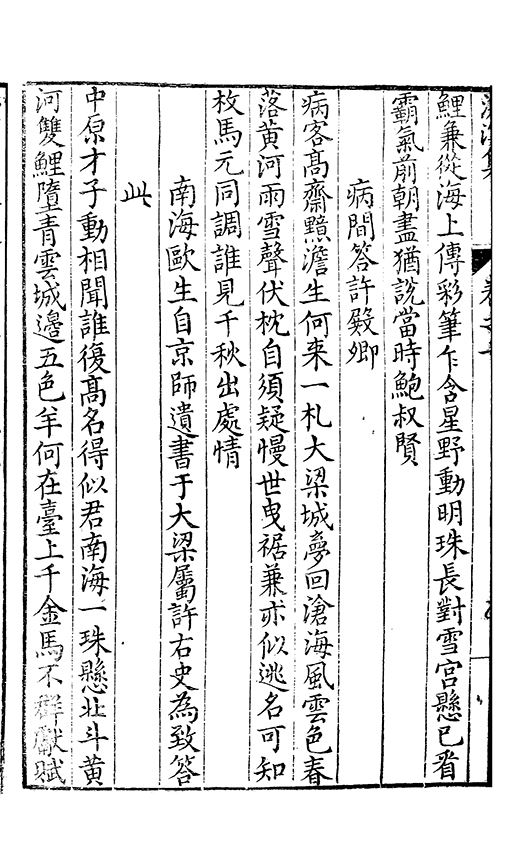 鯉兼從海上傳彩筆乍含星野動明珠長對雪宮懸已看
霸氣前朝盡猶說當時鮑叔賢
病間答許殿卿
病客髙齋黯澹生何來一札大梁城夢回滄海風雲色春
落黃河雨雪聲伏枕自須疑慢世曳裾兼亦似逃名可知
枚馬元同調誰見千秋出處情
南海歐生自京師遺書于大梁屬許右史為致答
此
中原才子動相聞誰復髙名得似君南海一珠懸北斗黃
河雙鯉墮青雲城邊五色羊何在臺上千金馬不群獻賦